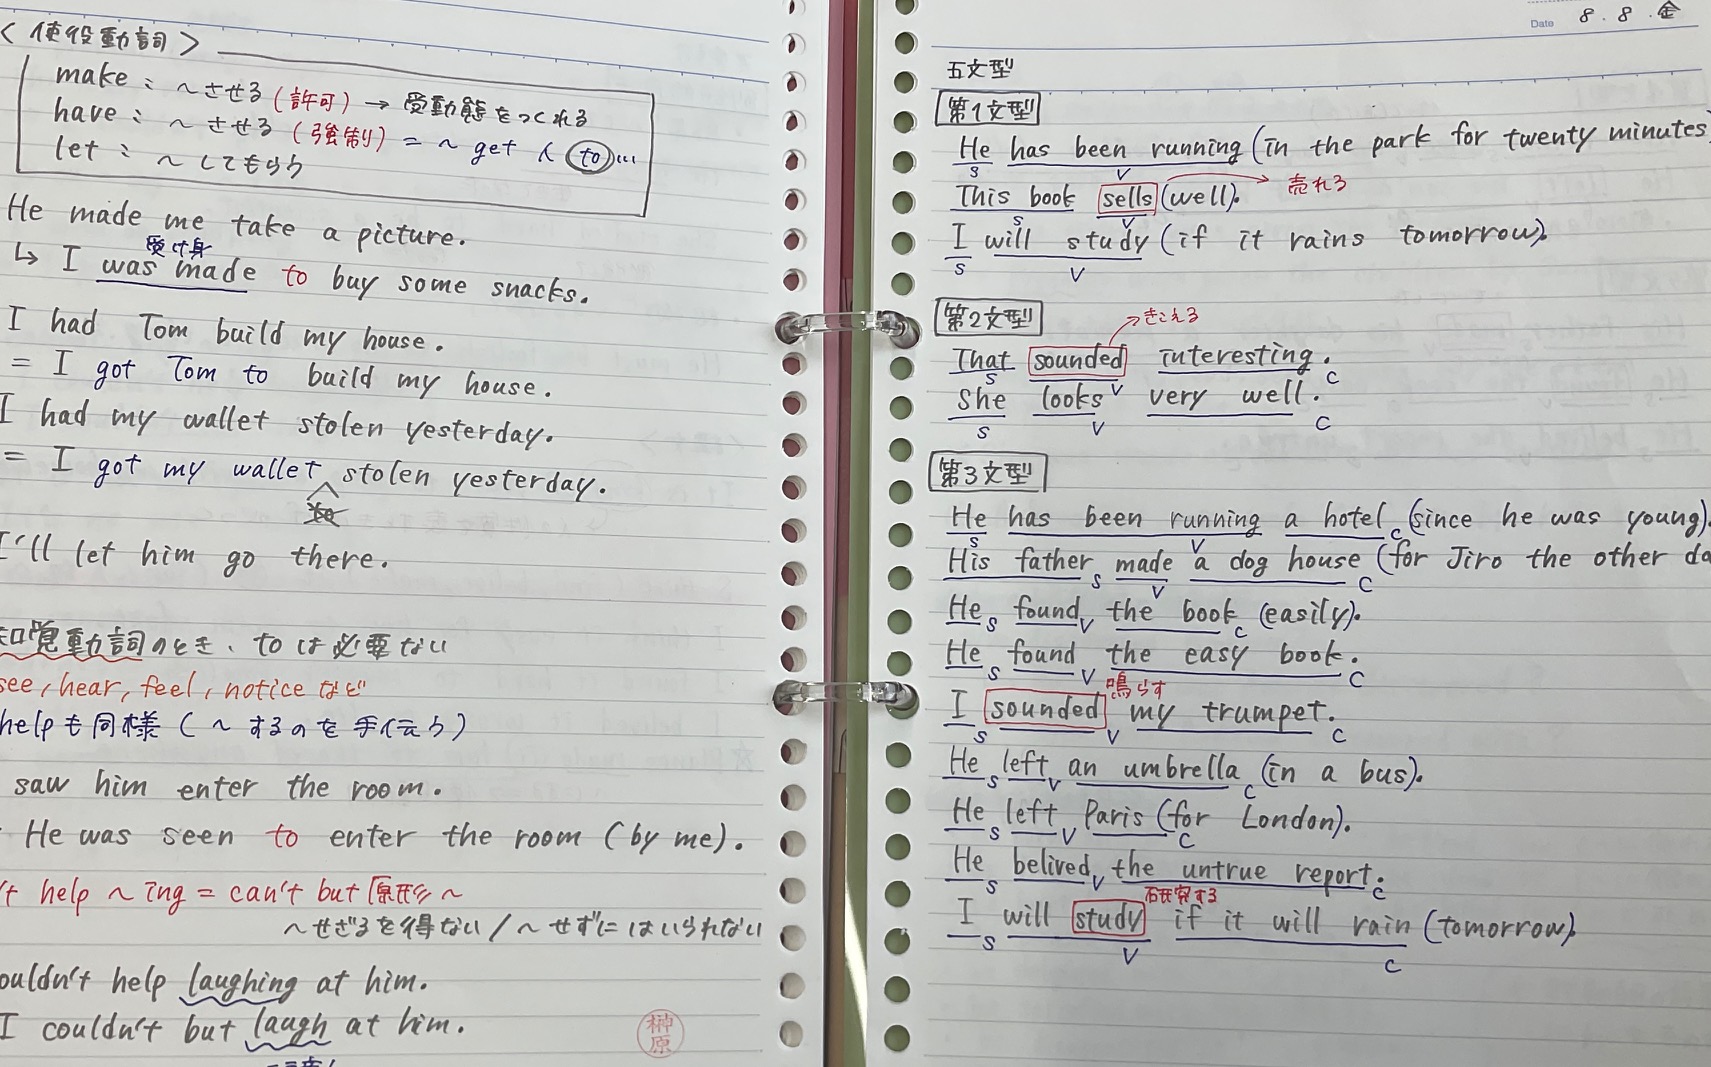 <使役動詞>
make : ~させる(許可) → 受動態をつくれる
have : ~させる(強制) = ~ get 人 to …
let : ~してもらう
He made me take a picture.
受け身
↳ I was made to buy some snacks.
I had Tom build my house.
= I got Tom to build my house.
I had my wallet stolen yesterday.
= I got my wallet stolen yesterday.
I'll let him go there.
知覚動詞のとき、toは必要ない
see, hear, feel, notice など
helpも同様(~するのを手伝う)
saw him enter the room.
He was seen to enter the room (by me).
't help ~ing = can't but 原形 ~
~せざるを得ない/~せずにはいられない
ouldn't help laughing at him.
I couldn't but laugh at him.
榊原
Date 8.8.金
五文型
第1文型
He has been running (in the park for twenty minutes)
S V
This book sells (well). 売れる
S V
I will study (if it rains tomorrow).
S V
第2文型
きこえる
That sounded interesting.
S V C
She looks very well.
S V C
第3文型
He has been running a hotel (since he was young).
S V C
His father made a dog house (for Jiro the other da
S V C
He found the book (easily).
S V C
He found the easy book.
S V C
鳴らす
I sounded my trumpet.
S V C
He left an umbrella (in a bus).
S V C
He left Paris (for London).
S V C
He belived the untrue report.
S V C
研究する
I will study if it will rain (tomorrow).
S V C